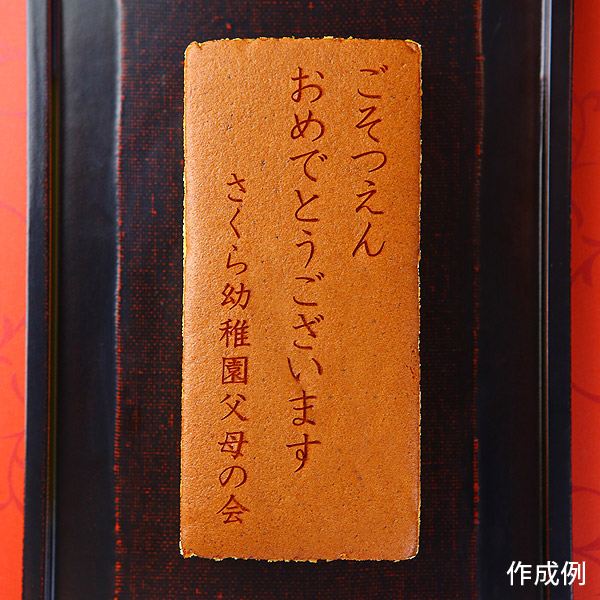 ごそつえん
おめでとうございます
さくら幼稚園父母の会
作成例